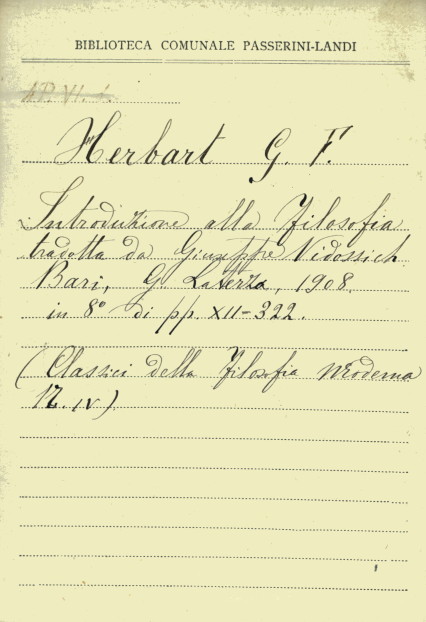 BIBLIOTECA COMUNALE PASSERINI-LANDI
Herbart G. F.
Introduzione alla Filosofia
tradotta da Giuseppe Vidossich
Bari, G. Laterza, 1908.
in 8° di pp. XII-322.
(Classici della Filosofia moderna
IV)